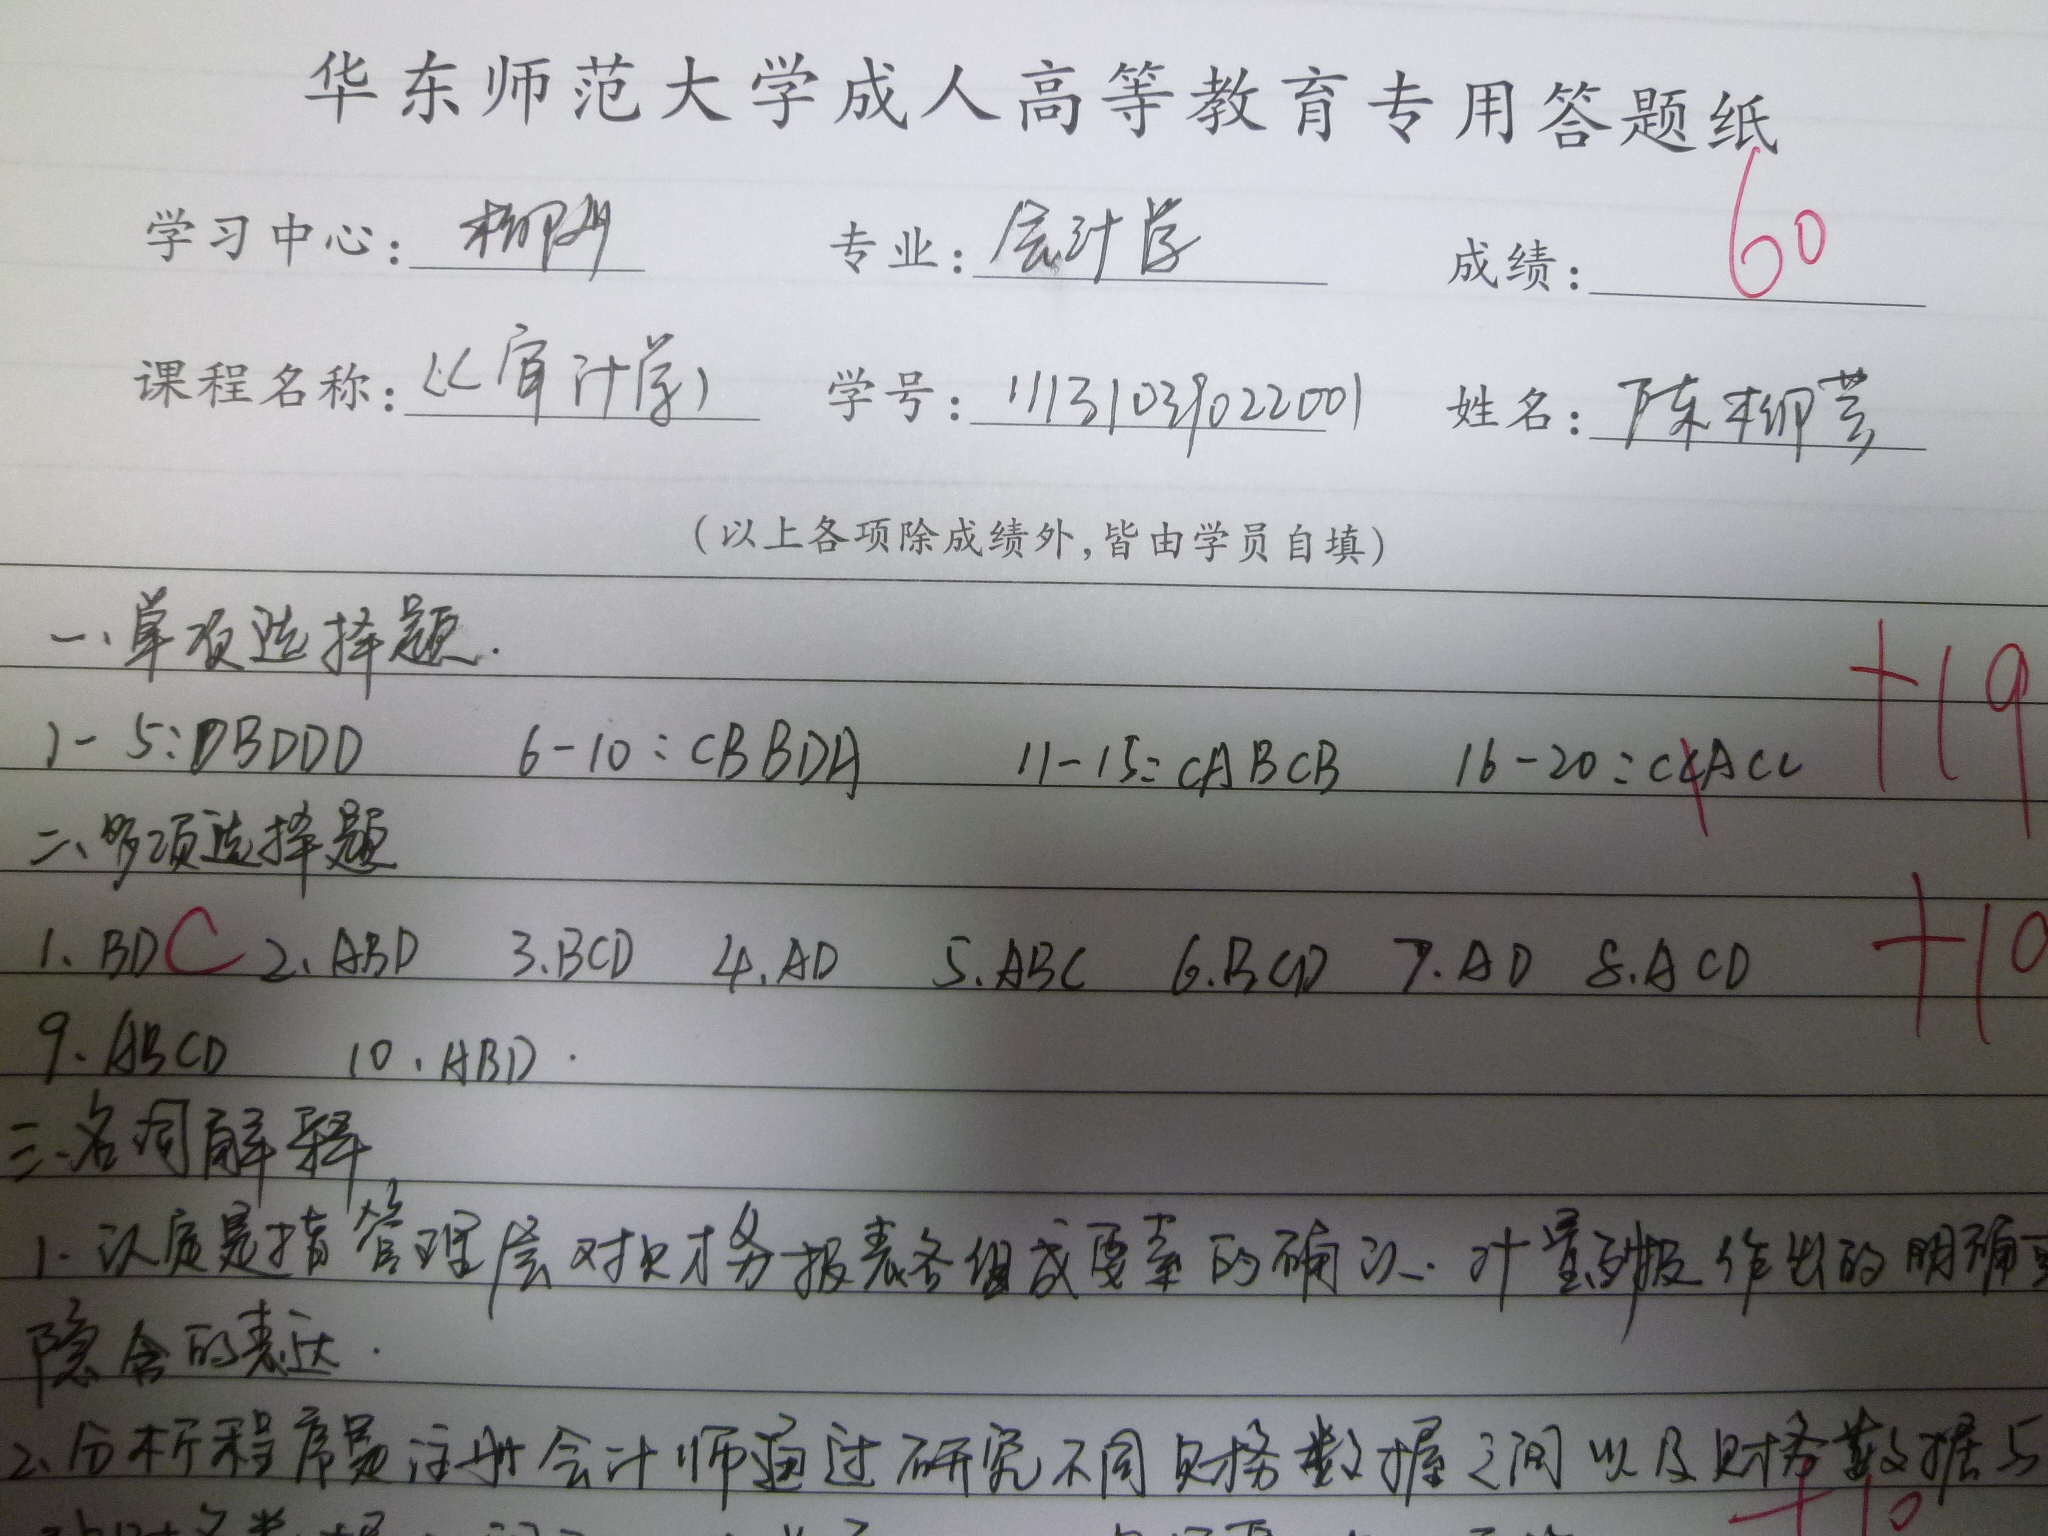 华东师范大学成人高等教育专用答题纸
学习中心: 柳州 专业: 会计学 成绩: 60
课程名称: 《审计学》 学号: 11131039022001 姓名: 陈柳芸
(以上各项除成绩外,皆由学员自填)
一、单项选择题. +19
1-5: DBDDD 6-10: CBBDA 11-15: CABCB 16-20: CCACC
二、多项选择题
1. BDC 2. ABD 3. BCD 4. AD 5. ABC 6. BCD 7. AD 8. ACD +10
9. ABCD 10. ABD.
三、名词解释
1. 认定是指管理层对财务报表各组成要素的确认、计量列报作出的明确或
隐含的表达.
2. 分析程序是注册会计师通过研究不同财务数据之间以及财务数据与
+10